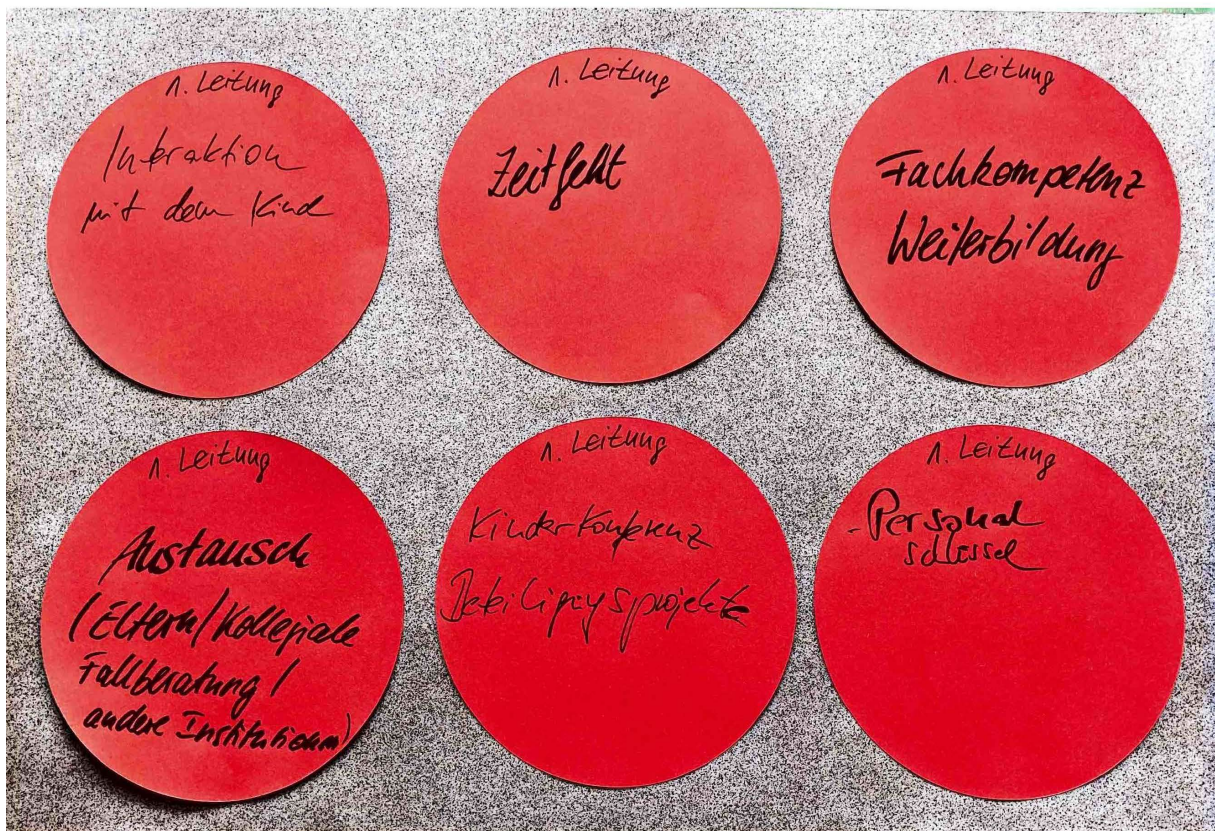 1. Leitung
Interaktion
mit dem Kind
1. Leitung
Zeit fehlt
1. Leitung
Fachkompetenz
Weiterbildung
1. Leitung
Austausch
(Eltern/Kollegiale
Fallberatung/
andere Institutionen)
1. Leitung
Kinderkonferenz
Beteiligungsprojekte
1. Leitung
- Personal
schlüssel